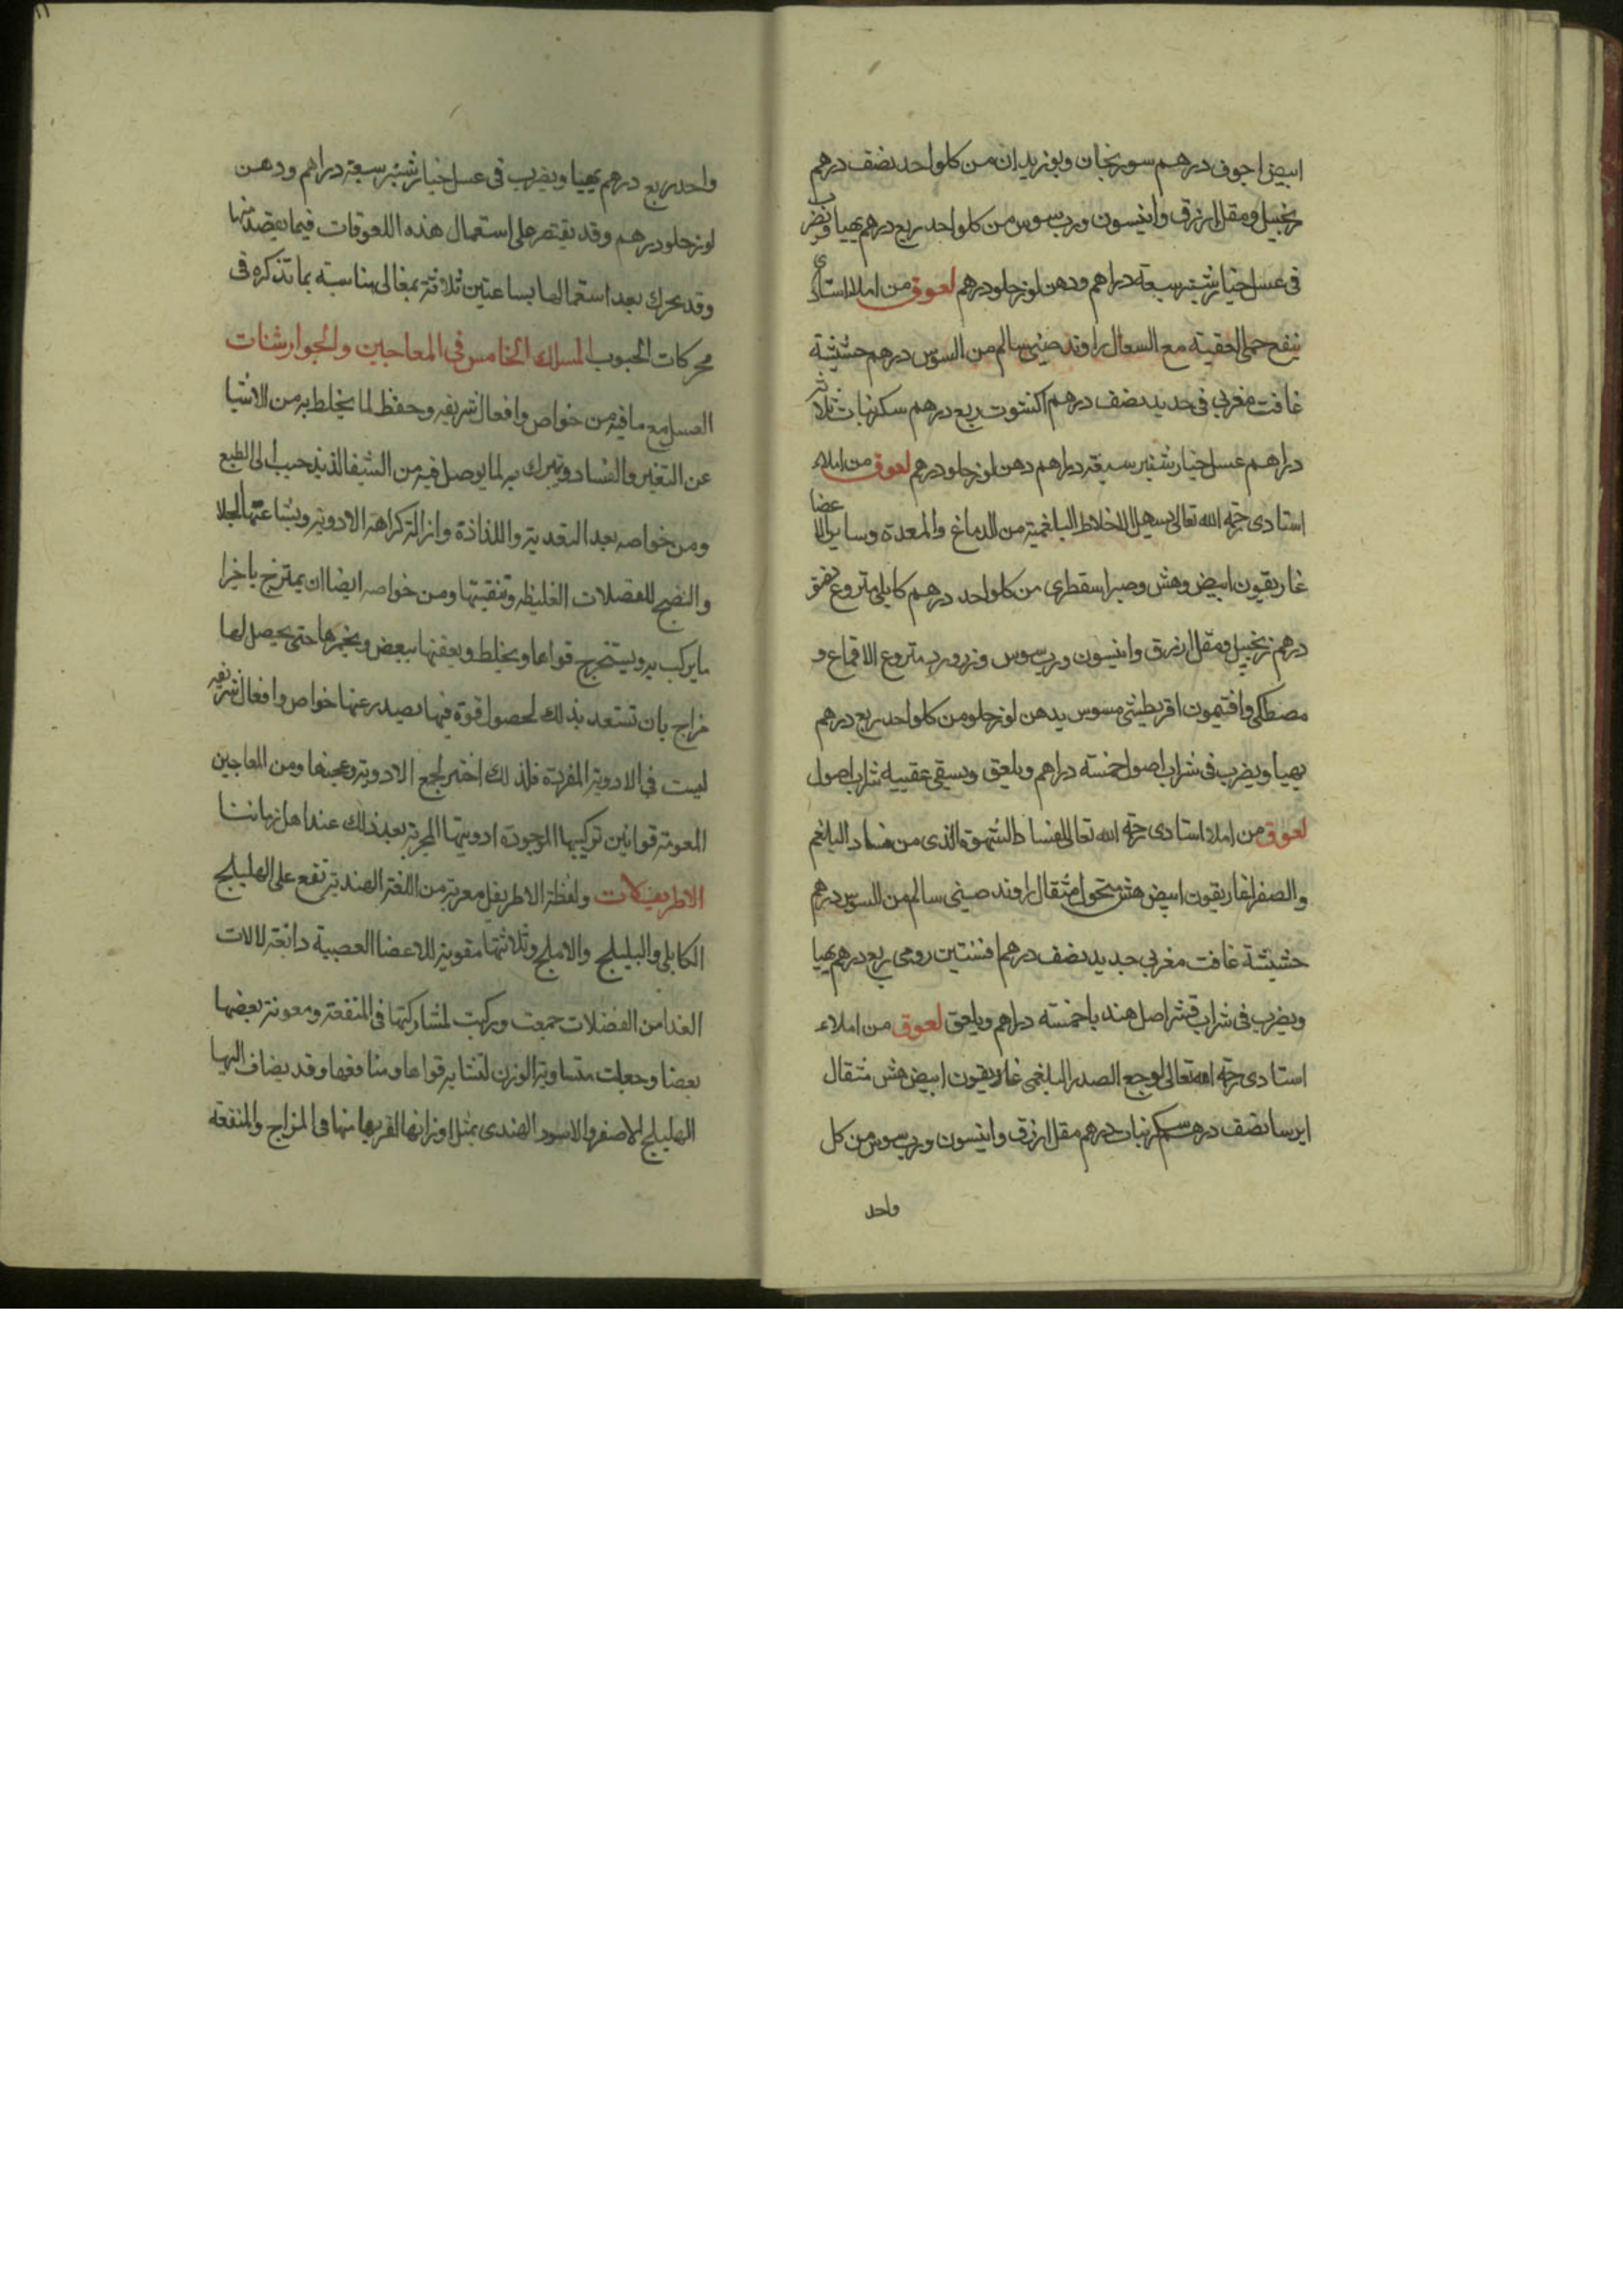 ابيض اجوف درهم سورنجان وبوزيدان من كل واحد نصف درهم
زنجبيل ومقل ازرق وانيسون ورب سوس من كل واحد ربع درهم يهيا ويضرب
فى عسل خيارشنبر سبعة دراهم ودهن لوز حلو درهم لعوق من املا استادى
ينفع حمى العفنية مع السعال راوند صينى سالم من السوس درهم حشيشة
غافت مغربي فى حديد نصف درهم اكشوت ربع درهم سكر نبات ثلاثة
دراهم عسل خيارشنبر سبعة دراهم دهن لوز حلو درهم لعوق من املاء
استادى رحمه الله تعالى يسهل الاخلاط البلغمية من الدماغ والمعدة وساير الاعضا
غاريقون ابيض وهش وصبر اسقطرى من كل واحد درهم كابلى منزوع نصف
درهم زنجبيل ومقل ازرق وانيسون ورب سوس وزر ورد منزوع الاقماع و
مصطكى وافتيمون اقريطيشى مسوس بدهن لوز حلو من كل واحد ربع درهم
يهيا ويضرب فى شراب اصول خمسة دراهم ويلعق ويسقى عقيبه شراب اصول
لعوق من املا استادى رحمه الله تعالى لفساد الشهوة الذى من فساد البلغم
والصفرا غاريقون ابيض هش منخول مثقال راوند صينى سالم من السوس درهم
حشيشة غافت مغربي جديد نصف درهم افسنتين رومى ربع درهم يهيا
ويضرب فى شراب قشر اصل هندبا خمسة دراهم ويلعق لعوق من املاء
استادى رحمه الله تعالى لوجع الصدر البلغمى غاريقون ابيض هش مثقال
ايرسا نصف درهم سكر نبات درهم مقل ازرق وانيسون ورب سوس من كل
واحد
واحد ربع درهم يهيا ويضرب فى عسل خيارشنبر سبعة دراهم ودهن
لوز حلو درهم وقد يقتصر على استعمال هذه اللعوقات فيما يقصد منها
وقد يحرك بعد استعمالها بساعتين ثلاثة بمغالى مناسبة بما تذكره فى
محركات الحبوب المسلك الخامس فى المعاجين والجوارشنات
العسل مع ما فيه من خواص وافعال شريفه وحفظ لما يخلط به من الاشيا
عن التغير والفساد ويتبرك به لما يوصل فيه من الشفا لذيذ حبيب الى الطبع
ومن خواصه بعد التغدية واللذاذة وازالة كراهة الادوية وبشاعتها الجلا
والنضج للفضلات الغليظه وتنقيتها ومن خواصه ايضا ان يمتزج باجزا
ما يركب به ويستخرج قواها ويخلط ويعفنها ببعض ويخمرها حتى يحصل لها
مزاج بان تستعد بذلك لحصول قوة فيها يصدر عنها خواص وافعال شريفه
ليست فى الادوية المفردة فلذلك اختير لجمع الادوية وعجنها ومن المعاجين
المعونة قوانين تركيبها الموجودة ادويتها المجربة بعد ذلك عند اهل زماننا
الاطريفلات ولفظة الاطريفل معربة من اللغة الهندية تقع على الهليلج
الكابلى والبليلج والاملج وثلاثتها مقوية للاعضا العصبية دابغة لالات
الغذا من الفضلات جمعت وركبت لمشاركتها فى المنفعة ومعونة بعضها
بعضا وجعلت متساوية الوزن لتشابه قواها ومنافعها وقد يضاف اليها
الهليلج الاصفر والاسود الهندى بمثل اوزانها لقربها منها فى المزاج والمنفعة